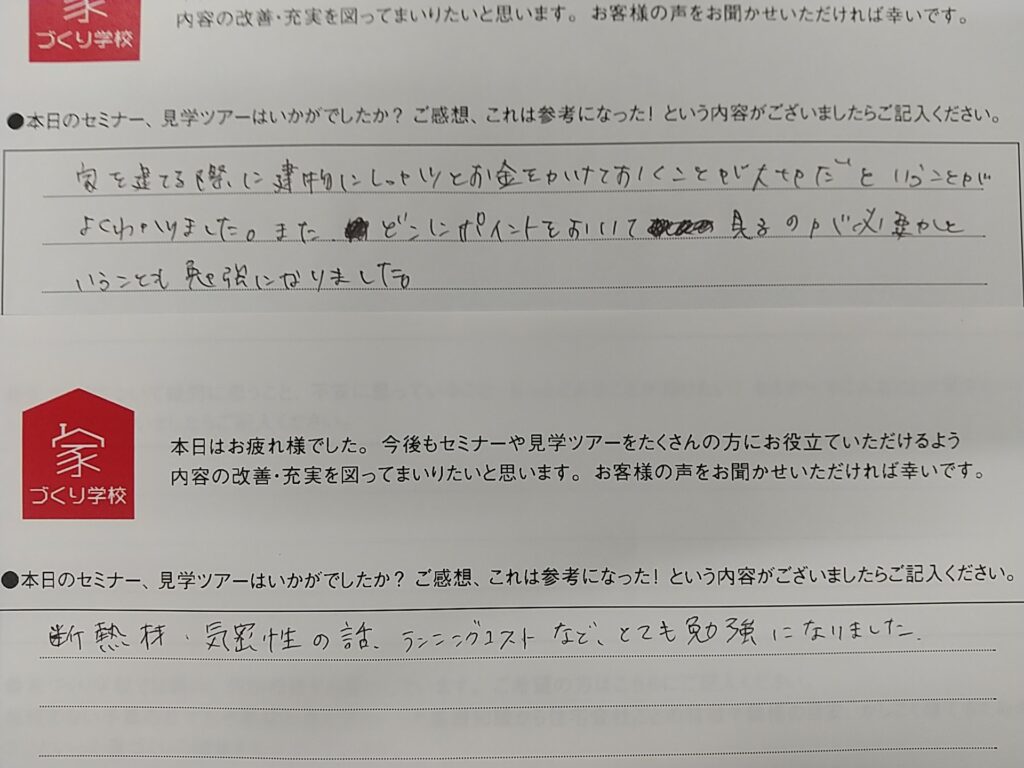 家
づくり学校
内容の改善・充実を図ってまいりたいと思います。お客様の声をお聞かせいただければ幸いです。
●本日のセミナー、見学ツアーはいかがでしたか？ご感想、これは参考になった！という内容がございましたらご記入ください。
家を建てる際に建物にしっかりとお金をかけておくことが大切だということが
よくわかりました。また どこにポイントをおいて 見るのが必要かと
いうことも勉強になりました。
家
づくり学校
本日はお疲れ様でした。今後もセミナーや見学ツアーをたくさんの方にお役立ていただけるよう
内容の改善・充実を図ってまいりたいと思います。お客様の声をお聞かせいただければ幸いです。
●本日のセミナー、見学ツアーはいかがでしたか？ご感想、これは参考になった！という内容がございましたらご記入ください。
断熱材・気密性の話、ランニングコストなど、とても勉強になりました.